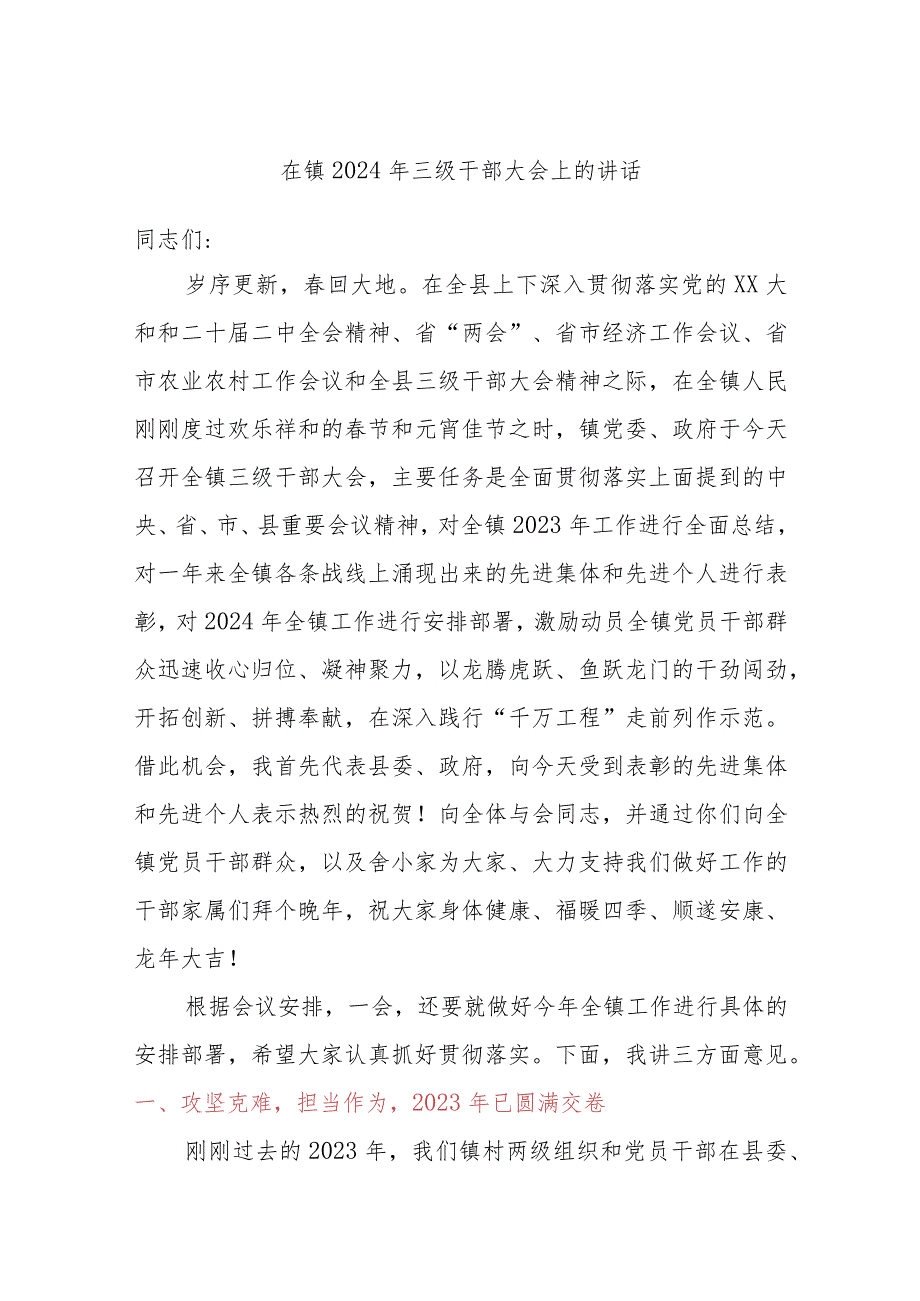 在镇 2024 年三级干部大会上的讲话
同志们:
岁序更新，春回大地。在全县上下深入贯彻落实党的 XX 大
和和二十届二中全会精神、省“两会”、省市经济工作会议、省
市农业农村工作会议和全县三级干部大会精神之际，在全镇人民
刚刚度过欢乐祥和的春节和元宵佳节之时，镇党委、政府于今天
召开全镇三级干部大会，主要任务是全面贯彻落实上面提到的中
央、省、市、县重要会议精神，对全镇 2023 年工作进行全面总结，
对一年来全镇各条战线上涌现出来的先进集体和先进个人进行表
彰，对 2024 年全镇工作进行安排部署，激励动员全镇党员干部群
众迅速收心归位、凝神聚力，以龙腾虎跃、鱼跃龙门的干劲闯劲，
开拓创新、拼搏奉献，在深入践行“千万工程”走前列作示范。
借此机会，我首先代表县委、政府，向今天受到表彰的先进集体
和先进个人表示热烈的祝贺！向全体与会同志，并通过你们向全
镇党员干部群众，以及舍小家为大家、大力支持我们做好工作的
干部家属们拜个晚年，祝大家身体健康、福暖四季、顺遂安康、
龙年大吉！
根据会议安排，一会，还要就做好今年全镇工作进行具体的
安排部署，希望大家认真抓好贯彻落实。下面，我讲三方面意见。
一、攻坚克难，担当作为，2023 年已圆满交卷
刚刚过去的 2023 年，我们镇村两级组织和党员干部在县委、